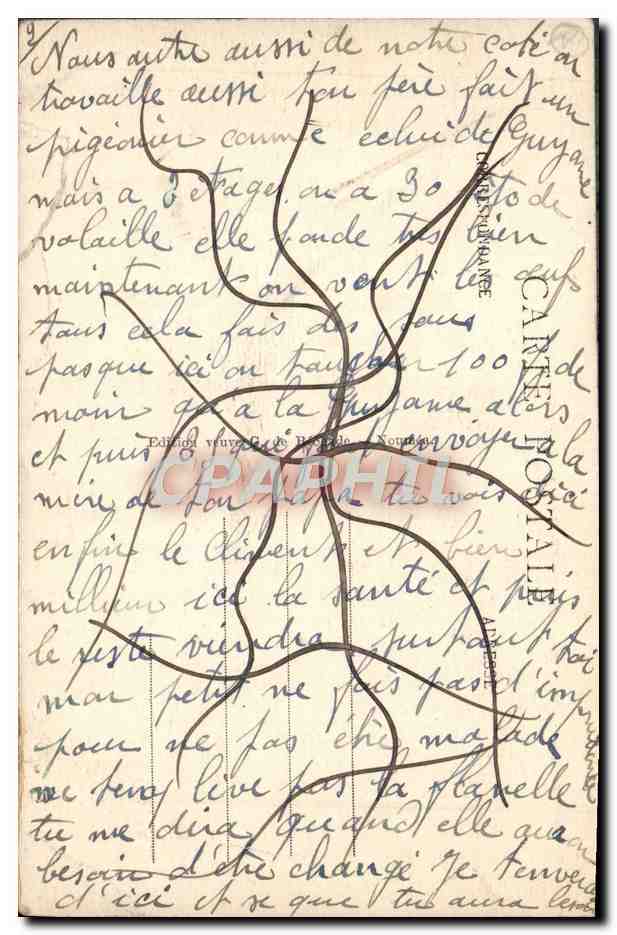 2/
Nous autre aussi de notre coté on
travaille aussi ton père fait un
pigeonier comme celui de Guyane
mais a 2 etages on a 30 de
volaille elle ponde tres bien
maintenant on vent les oeufs
tous cela fais des sous
pasque ici on touche 100 f de
moin qu a la Guyane alors
et puis envoyer a la
mère de ton papa tu vois d ici
enfin le Climent et bien
milleur ici la santé et puis
le reste viendra surtout toi
mon petit ne fais pas d'imprudence
pour ne pas être malade
ne pas la flanelle
tu me dira quand elle aura
besoin d'être changé Je t'enverai
d'ici et se que tu aura besoin
CORRESPONDANCE
CARTE POSTALE
ADRESSE
Edition veuve G. de Nouméa
CPAPHIL